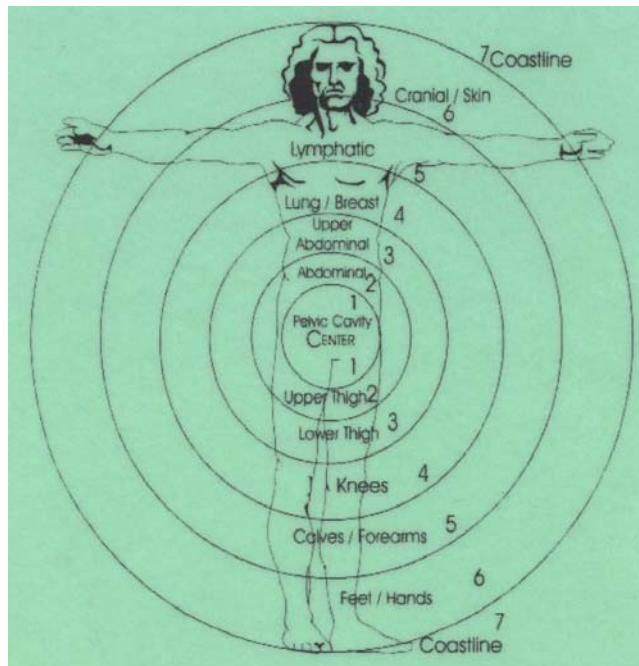 7 Coastline
Cranial / Skin
6
Lymphatic
5
Lung / Breast
4
Upper
Abdominal
3
Abdominal
2
1
Pelvic Cavity
CENTER
1
Upper Thigh 2
Lower Thigh 3
Knees 4
Calves / Forearms 5
6
Feet / Hands
7
Coastline